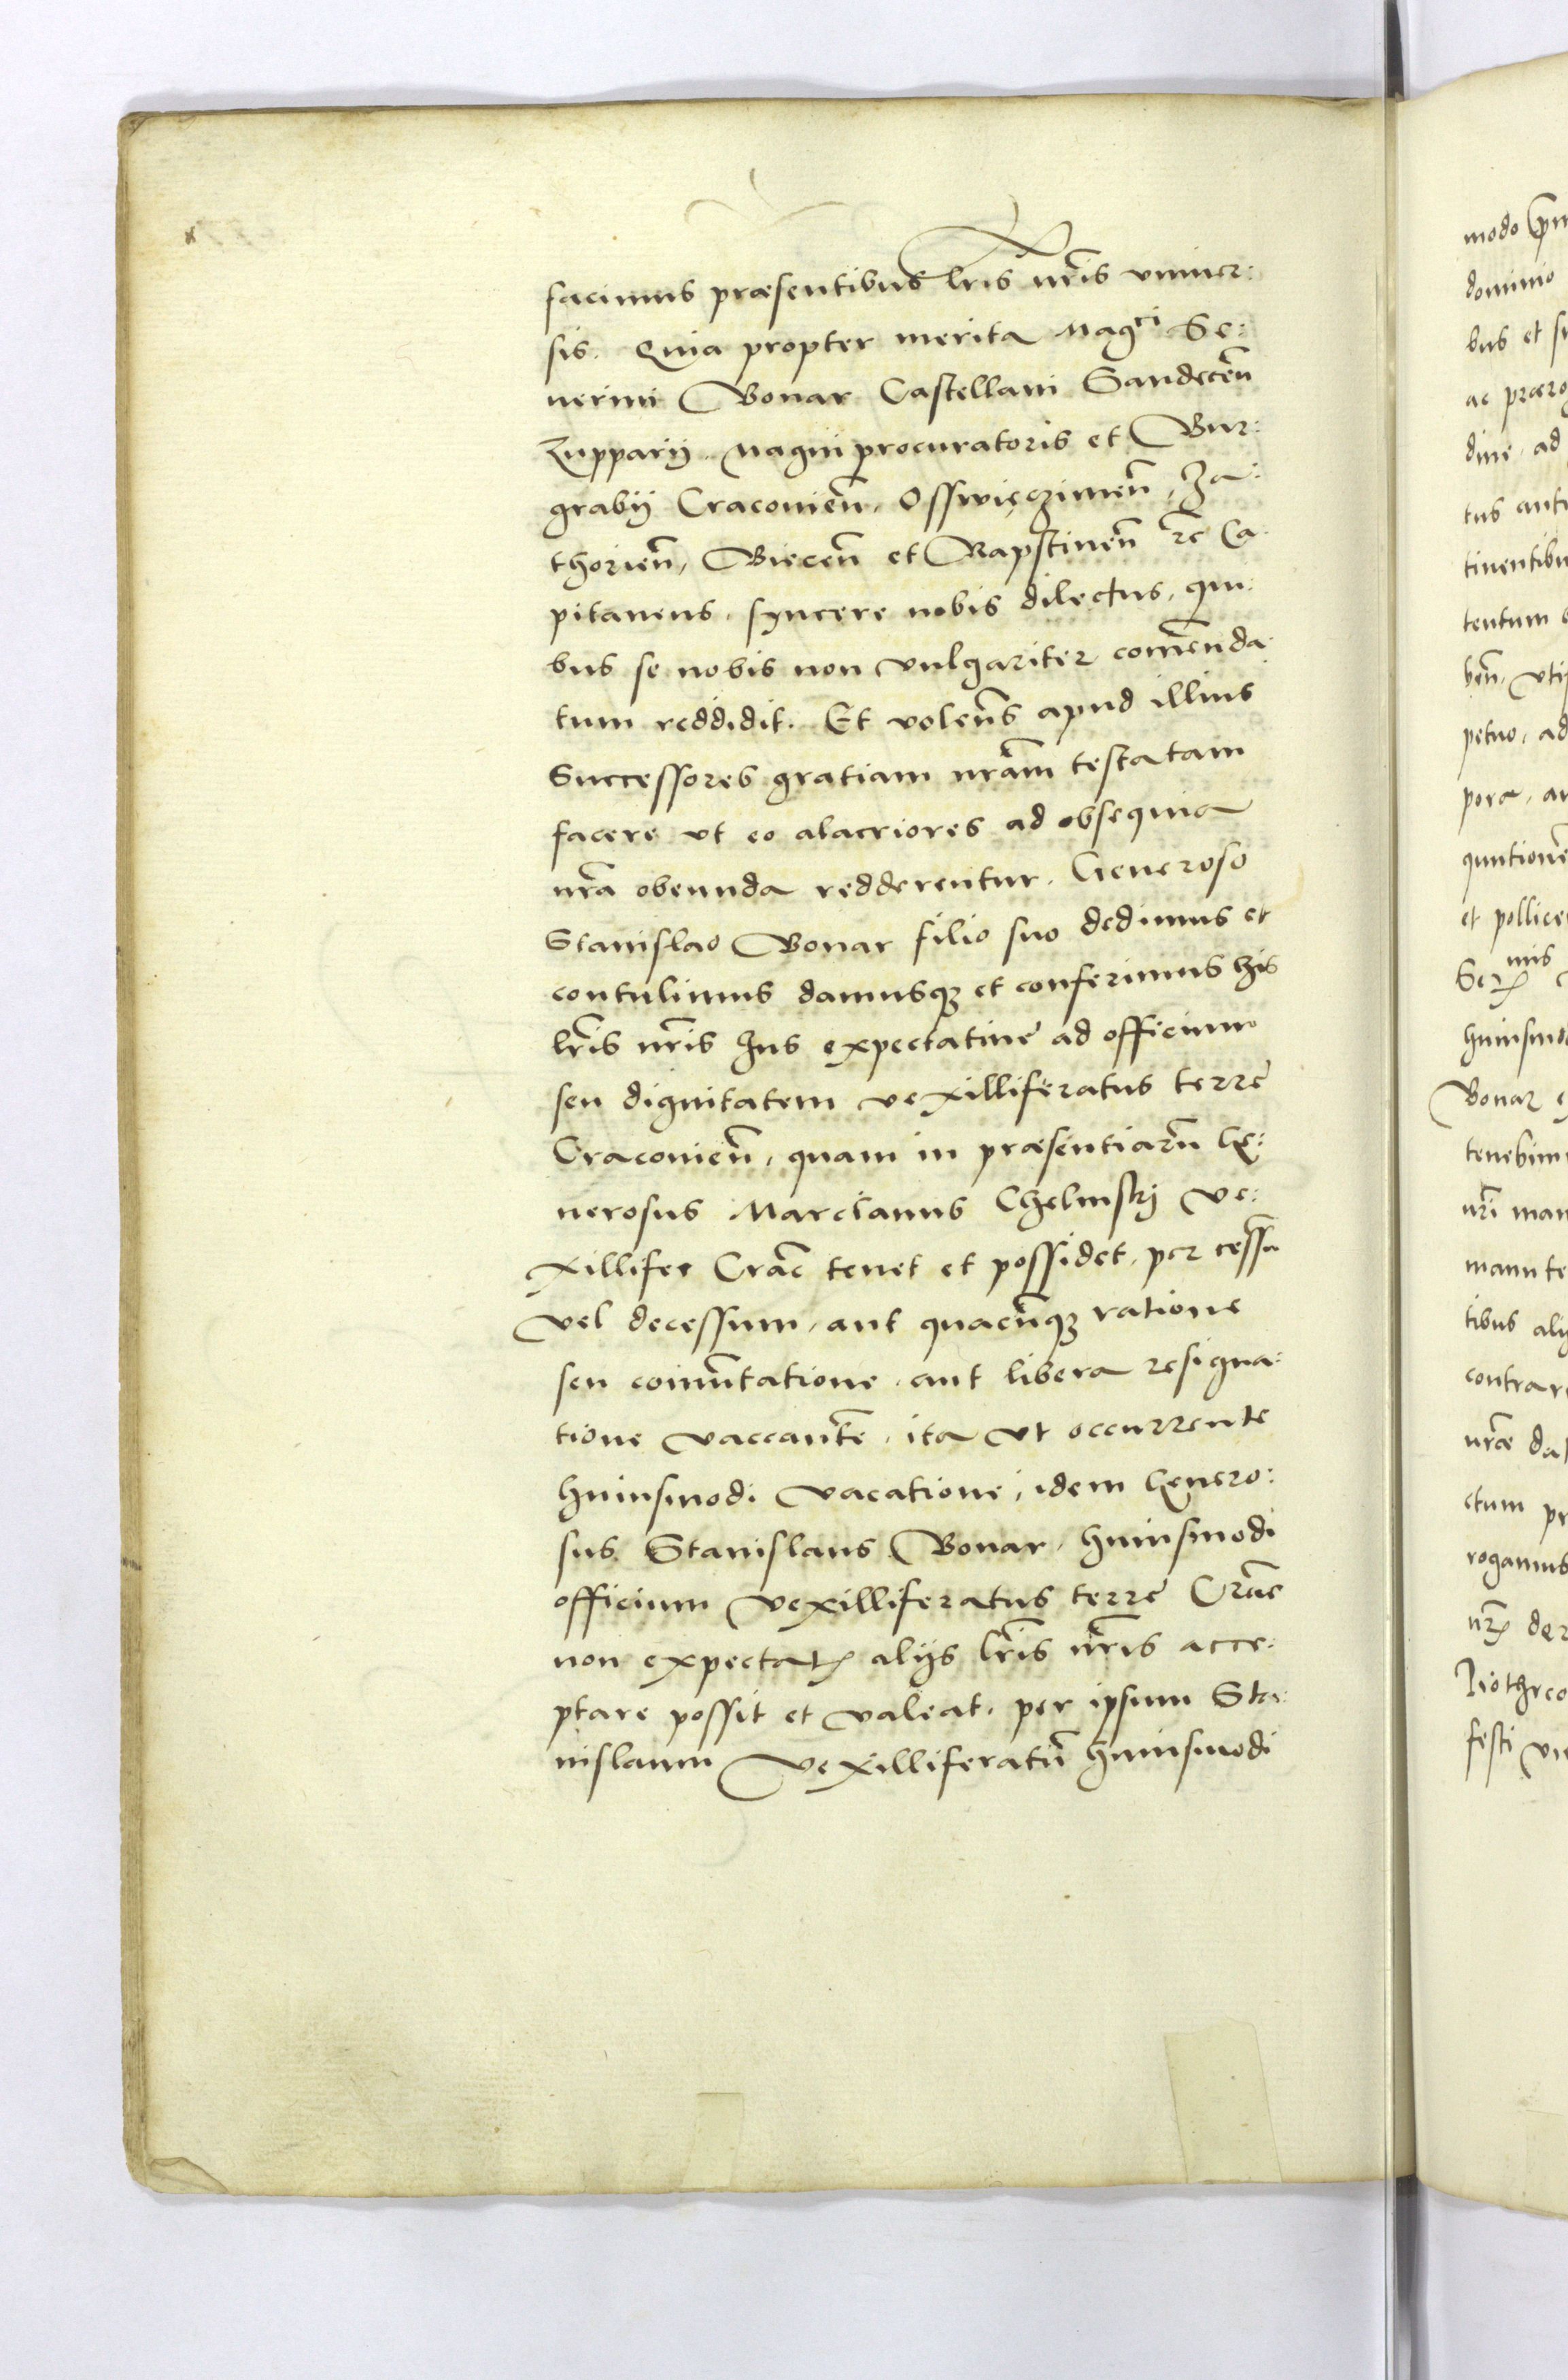 facimus præsentibus lr̃is nr̃is vniuer:
sis. Quia propter merita Magci Se:
uerini Bonar Castellani Sandecen̄
Zupparij Magni procuratoris et Bur:
grabij Cracouien̄, Osswięczimen̄, Za:
thorien̄, Biecen̄ et Rapstinen̄ &c̄ Ca
pitaneus, syncere nobis dilectus, qui:
bus se nobis non vulgariter com̄enda
tum reddidit. Et volens apud illius
Successores gratiam nr̃am testatam
facere vt eo alacriores ad obsequia
nr̃a obeunda redderentur. Generoso
Stanislao Bonar filio suo dedimus et
contulimus damusqꝫ et conferimus his
lr̃is nr̃is Ius expectatiue ad officium
seu dignitatem vexilliferatus terre
Cracouien̄, quam in præsentiarū Ge:
nerosus Marcianus Chelmskj ve:
xillifer Crac̄ tenet et possidet, per cessū
vel decessum, aut quacūqꝫ ratione
seu com̄utatione, aut libera resigna:
tione vaccantē, ita vt occurrente
huiusmodi vacatione, idem Genero:
sus Stanislaus Bonar, huiusmodi
officium vexilliferatus terre Crac̄
non expectatꝭ alijs lr̃is nr̃is acce:
ptare possit et valeat, per ipsum Sta
nislaum vexilliferatū huiusmodi
modo
dominio
bus et
dine, ad
tus
tentum
ben̄,
petuo, ad
pora,
et
mis
Bonar
nr̃i
tibus
nr̃æ
ctum
rogamus
festi